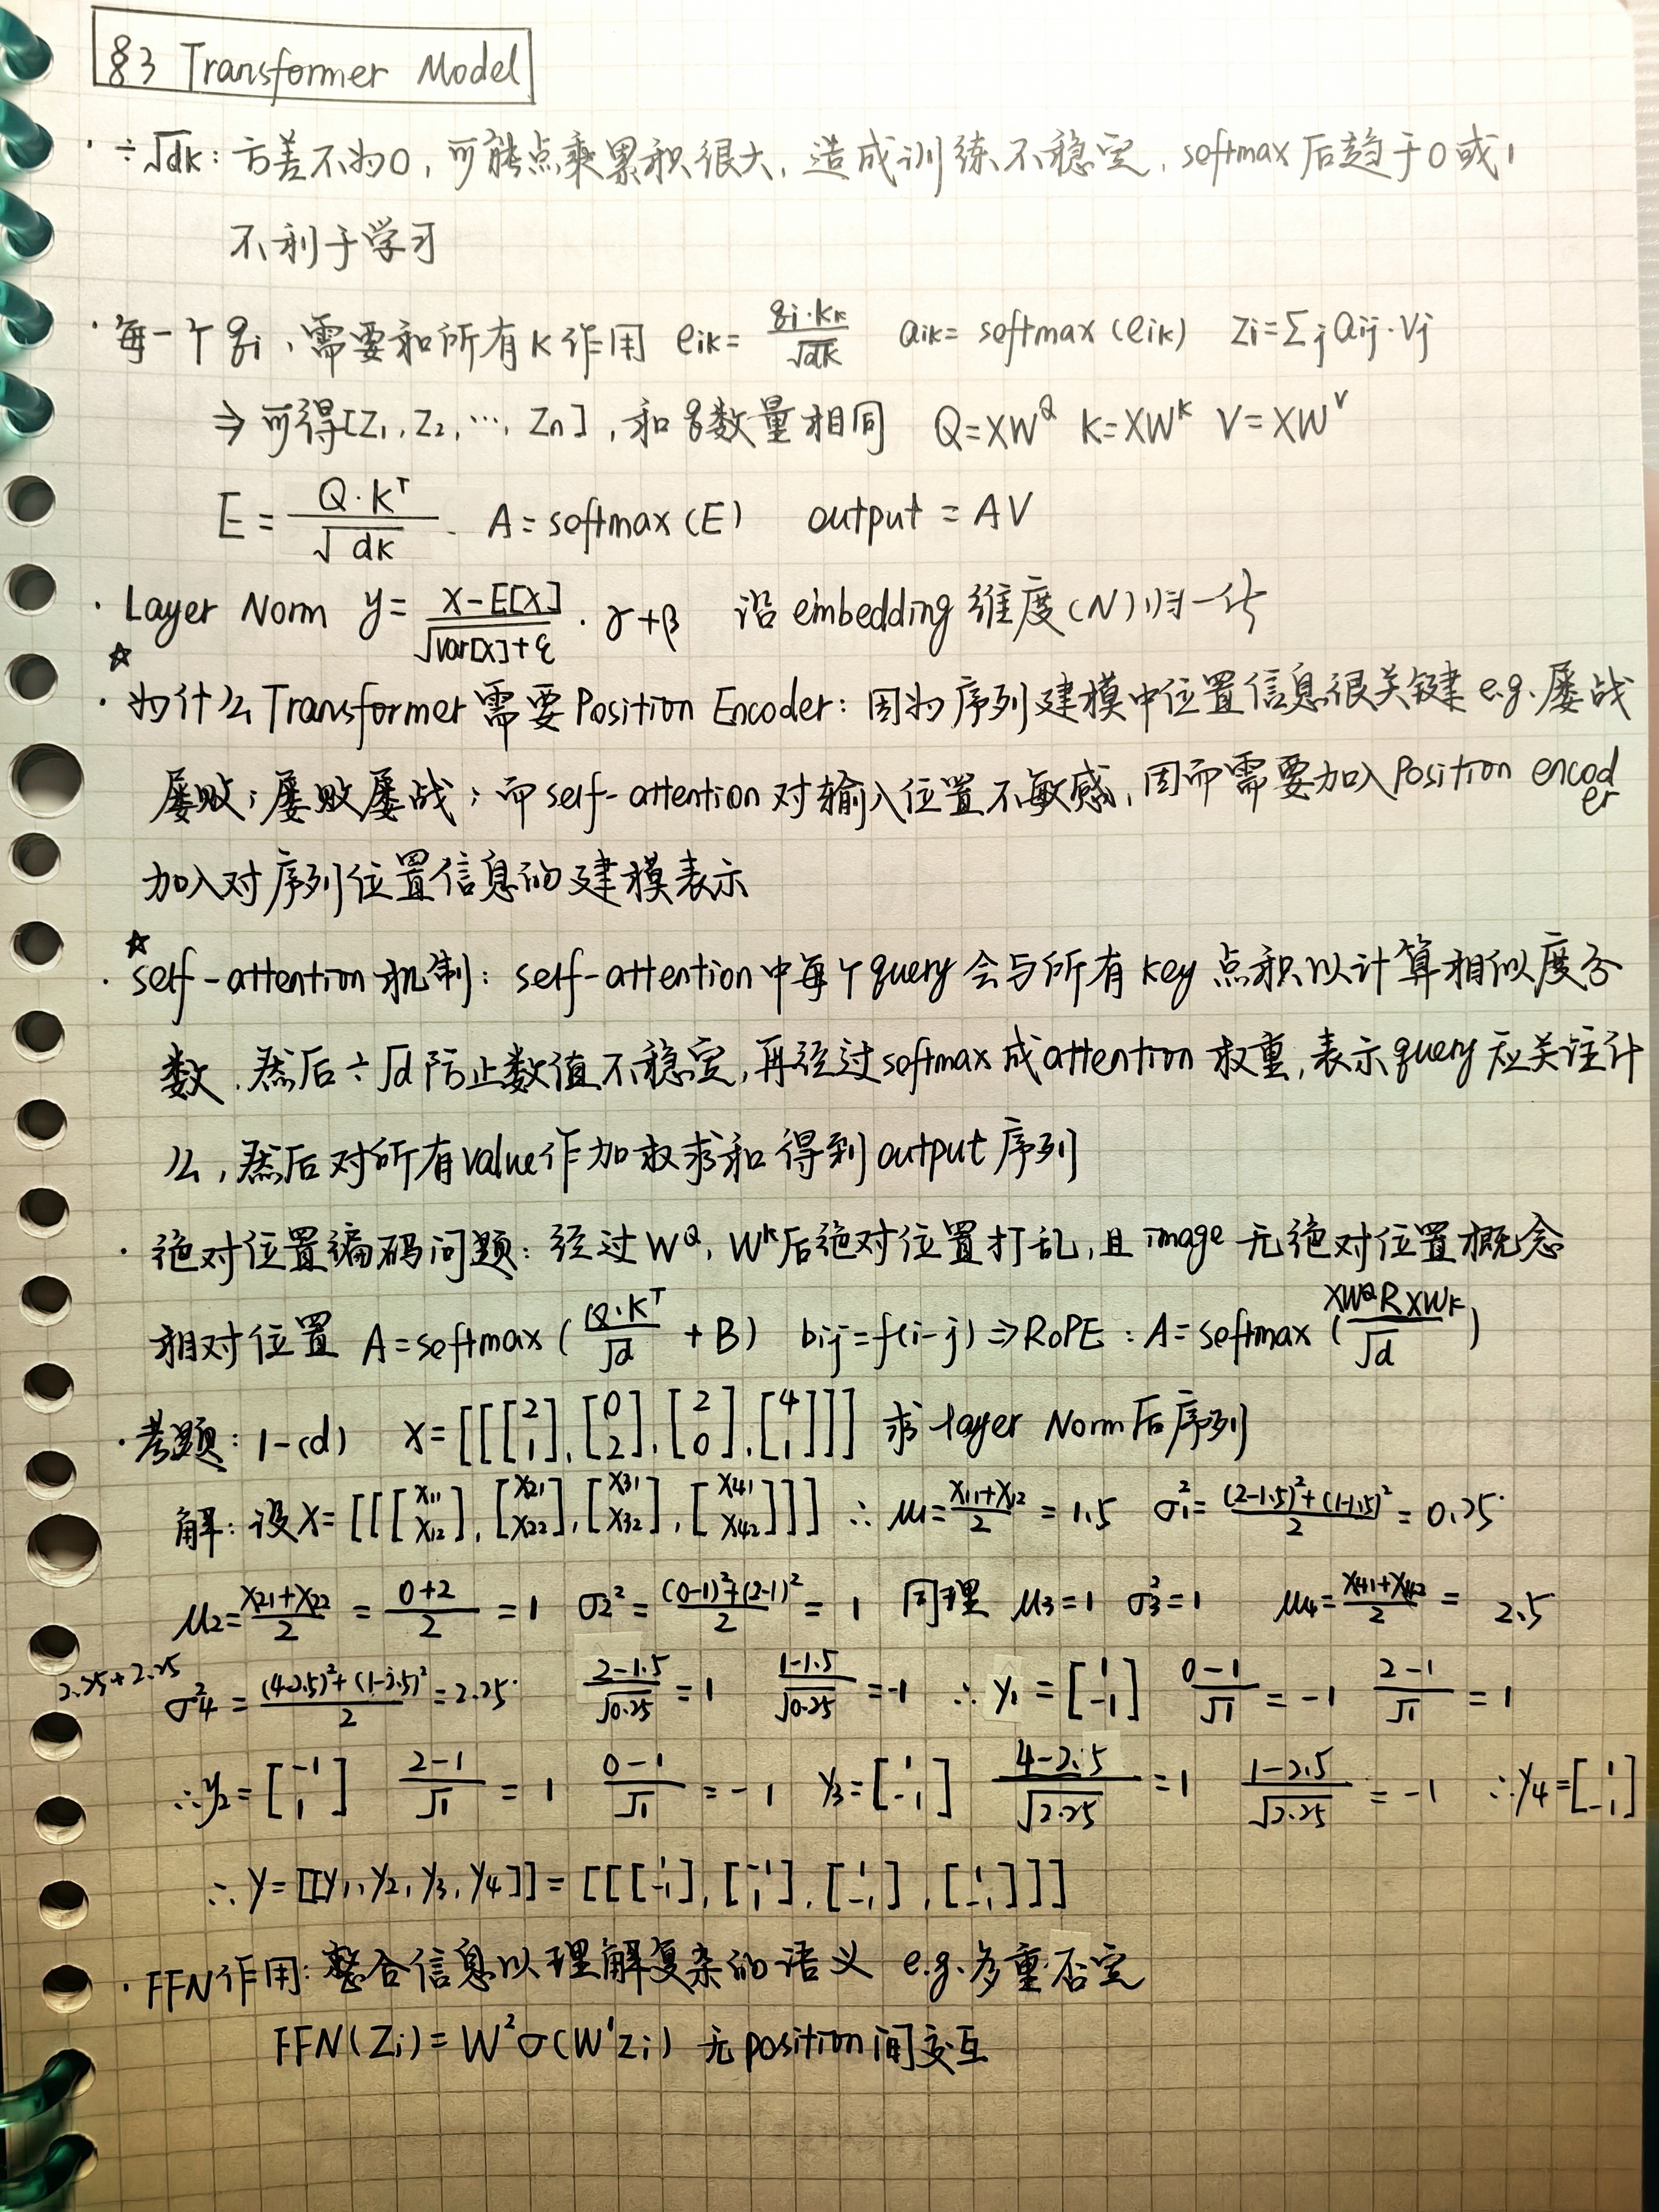 §3 Transformer Model
· ÷√dk: 方差不为0, 可能点乘累积很大, 造成训练不稳定, softmax后趋于0或1
不利于学习
· 每一个qi, 需要和所有K作用 eik= qi·kk/√dk aik= softmax(eik) Zi=Σj aij·Vj
⇒ 可得[Z1, Z2, …, Zn], 和q数量相同 Q=XW^Q K=XW^K V=XW^V
E = Q·K^T/√dk . A=softmax(E) output = AV
· Layer Norm y= (x-E[x])/√(var[x]+ε) · γ+β 沿embedding维度(N)归一化
☆
· 为什么Transformer需要Position Encoder: 因为序列建模中位置信息很关键 e.g.屡战
屡败; 屡败屡战; 而self-attention对输入位置不敏感, 因而需要加入Position encoder
加入对序列位置信息的建模表示
☆
· self-attention机制: self-attention中每个query会与所有key点积以计算相似度分
数, 然后÷√d防止数值不稳定, 再经过softmax成attention权重, 表示query应关注什
么, 然后对所有value作加权求和得到output序列
· 绝对位置编码问题: 经过W^Q, W^K后绝对位置打乱, 且image无绝对位置概念
相对位置 A=softmax(Q·K^T/√d + B) bij=f(i-j) ⇒ RoPE : A=softmax(XWQRXWK/√d)
· 考题: 1-(d) X=[[[2 1], [0 2], [2 0], [4 1]]] 求 layer Norm后序列
解: 设X=[[[x11 x12], [x21 x22], [x31 x32], [x41 x42]]] ∴ μ1=(x11+x12)/2 = 1.5 σ1²= ((2-1.5)²+(1-1.5)²)/2 = 0.25
μ2=(x21+x22)/2 = (0+2)/2 = 1 σ2² = ((0-1)²+(2-1)²)/2 = 1 同理 μ3=1 σ3²=1 μ4=(x41+x42)/2 = 2.5
2.25+2.25
σ4² = ((4-2.5)²+(1-2.5)²)/2 = 2.25 (2-1.5)/√0.25 = 1 (1-1.5)/√0.25 = -1 ∴ y1 = [1 -1] (0-1)/√1 = -1 (2-1)/√1 = 1
∴ y2 = [-1 1] (2-1)/√1 = 1 (0-1)/√1 = -1 y3=[1 -1] (4-2.5)/√2.25 = 1 (1-2.5)/√2.25 = -1 ∴ y4=[1 -1]
∴ Y=[[y1, y2, y3, y4]] = [[[1 -1], [-1 1], [1 -1], [1 -1]]]
· FFN作用: 整合信息以理解复杂的语义 e.g.多重否定
FFN(Zi) = W²σ(W¹zi) 无position间交互